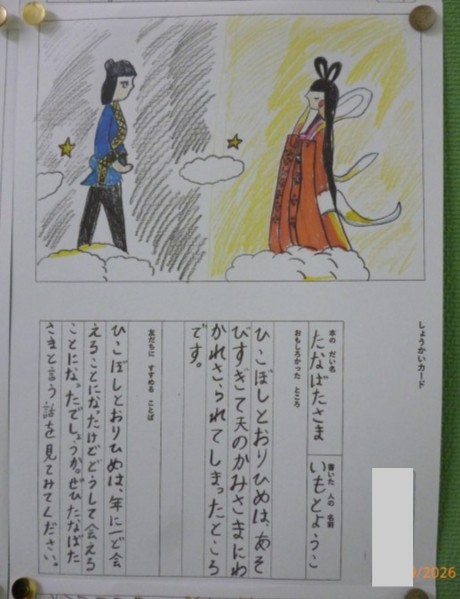 しょうかいカード
本の だい名
たなばたさま
書いた 人の 名前
いもとようこ
おもしろかった ところ
ひこぼしとおりひめは、あそ
びすぎて天のかみさまにわ
かれさせられてしまったところ
です。
友だちに すすめる ことば
ひこぼしとおりひめは、年に一ど会
えることになったけどどうして会える
ことになったでしょうか。ぜひたなばた
さまと言う話を見てみてください。
/2026